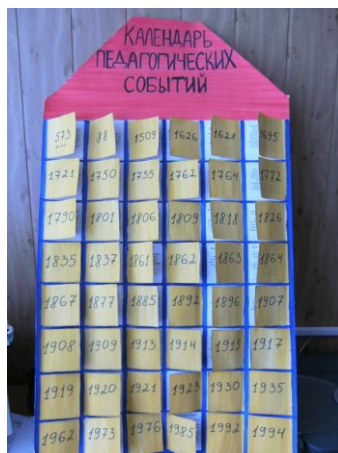 КАЛЕНДАРЬ
ПЕДАГОГИЧЕСКИХ
СОБЫТИЙ
573 88 1509 1626 1628 1695
1721 1750 1755 1762 1764 1772
1790 1801 1806 1809 1818 1826
1835 1837 1861 1862 1863 1864
1867 1877 1885 1892 1896 1907
1908 1909 1913 1914 1915 1917
1919 1920 1921 1923 1930 1935
1962 1973 1976 1985 1992 1994